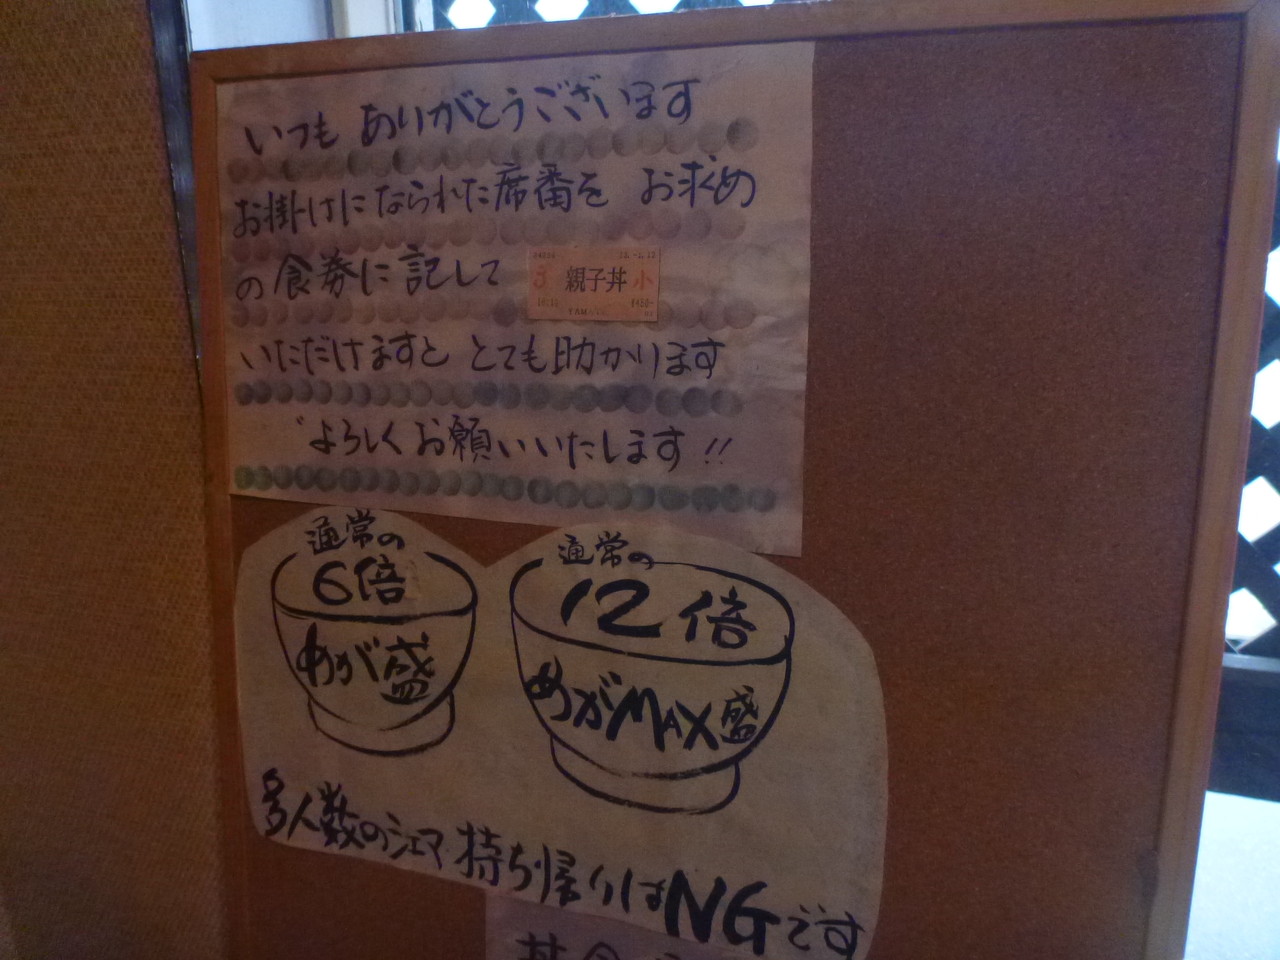 いつも ありがとうございます
お掛けになられた席番を お求め
の食券に記して
親子丼 小
いただけますと とても助かります
よろしくお願いいたします!!
通常の
6倍
めが盛
通常の
12倍
めがMAX盛
多人数のシェア 持ち帰りはNGです